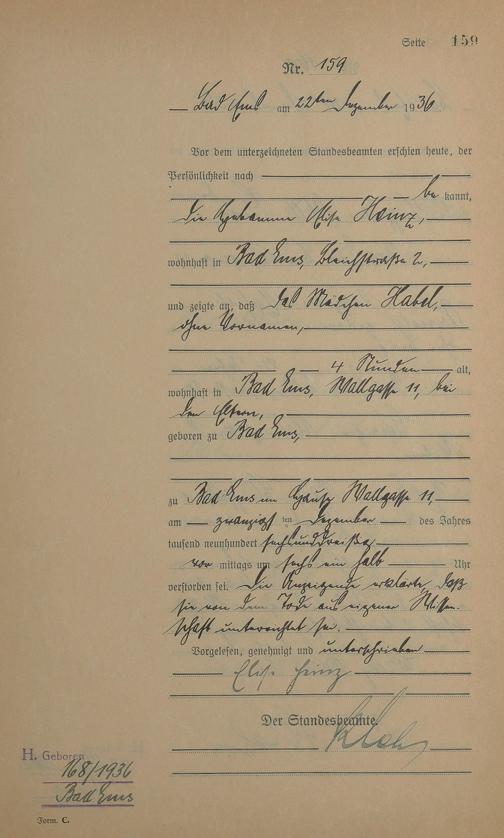 Seite 159
Nr. 159
Bad Ems am 22ten Dezember 1936
Vor dem unterzeichneten Standesbeamten erschien heute, der
Persönlichkeit nach
be kannt,
die Hebamme Elise Heinz,
wohnhaft in Bad Ems, Bleichstraße 2,
und zeigte an, daß das Mädchen Habel,
ohne Vornamen,
4 Stunden alt,
wohnhaft in Bad Ems, Wallgasse 11, bei
den Eltern,
geboren zu Bad Ems,
zu Bad Ems im Hause Wallgasse 11,
am zwanzigsten Dezember des Jahres
tausend neunhundert sechsunddreißig
vor mittags um sechs ein halb Uhr
verstorben sei. Die Anzeigende erklärte, daß
sie von dem Tode aus eigener Wissen-
schaft unterrichtet sei.
Vorgelesen, genehmigt und unterschrieben
Elise Heinz
Der Standesbeamte.
H. Geboren
168/1936
Bad Ems
Form. C.